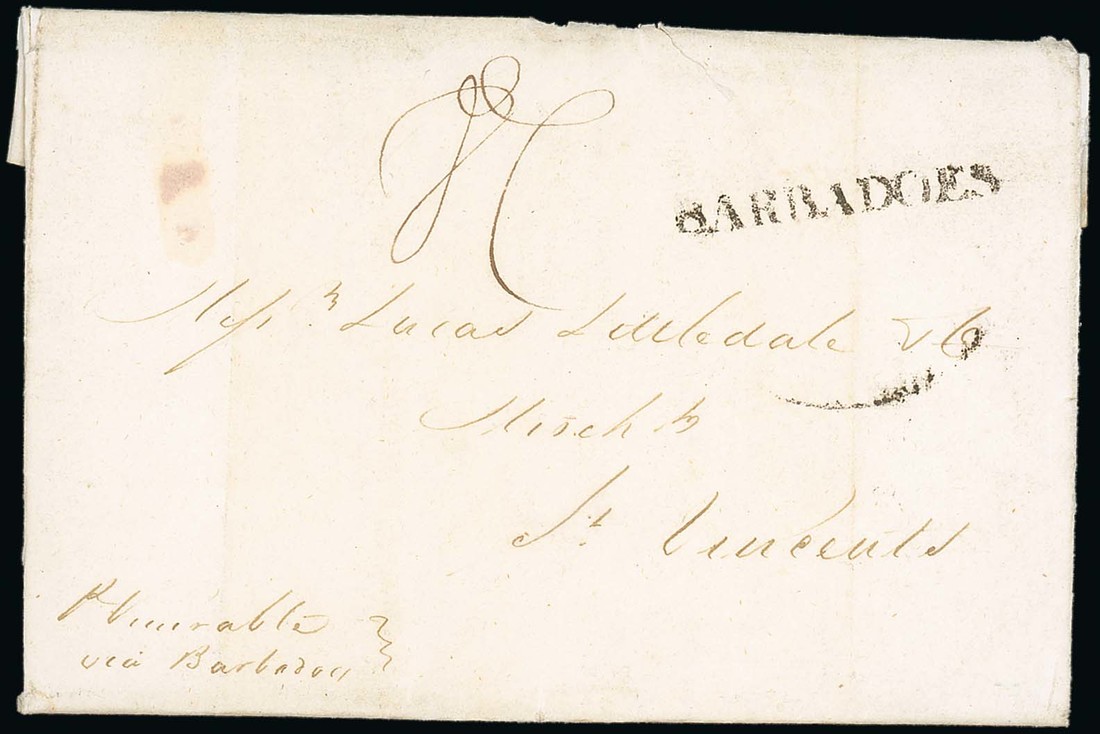 BARBADOES
Messrs Lucas Littledale & Co
Merchts
St Vincents
Pr Venerable
via Barbadoes